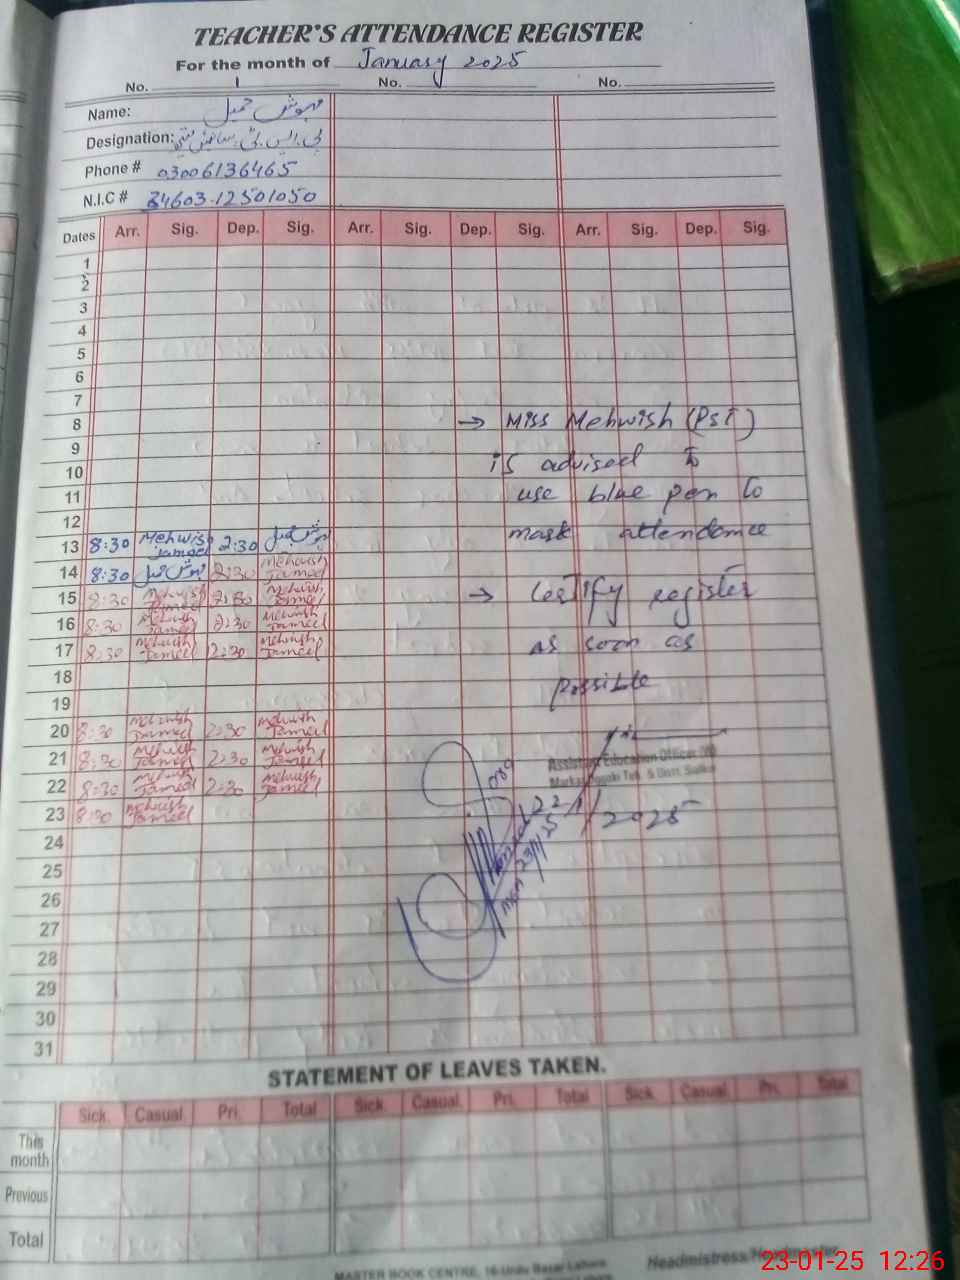 TEACHER'S ATTENDANCE REGISTER
For the month of January 2025
No. 1 No. No.
Name: مہوش جمیل
Designation: پی۔ایس۔ٹی۔
Phone # 03006136465
N.I.C # 34603-12501050
Dates Arr. Sig. Dep. Sig. Arr. Sig. Dep. Sig. Arr. Sig. Dep. Sig.
1
2
3
4
5
6
7
8
9
10
11
12
13 8:30 Mehwish Jameel 2:30 مہوش جمیل
14 8:30 مہوش جمیل 2:30 Mehwish Jameel
15 8:30 Mehwish Jameel 2:30 Mehwish Jameel
16 8:30 Mehwish Jameel 2:30 Mehwish Jameel
17 8:30 Mehwish Jameel 2:30 Mehwish Jameel
18
19
20 8:30 Mehwish Jameel 2:30 Mehwish Jameel
21 8:30 Mehwish Jameel 2:30 Mehwish Jameel
22 8:30 Mehwish Jameel 2:30 Mehwish Jameel
23 8:30 Mehwish Jameel
24
25
26
27
28
29
30
31
→ Miss Mehwish (PST)
is advised to
use blue pen to
mark attendance
→ Certify register
as soon as
possible
Assistant Education Officer
22/1/2025
23/1/25
STATEMENT OF LEAVES TAKEN.
Sick. Casual. Pri. Total Sick. Casual. Pri. Total Sick. Casual. Pri. Total
This month
Previous
Total
MASTER BOOK CENTRE, 16-Urdu Bazar Lahore
Headmistress/Headmaster
23-01-25 12:26